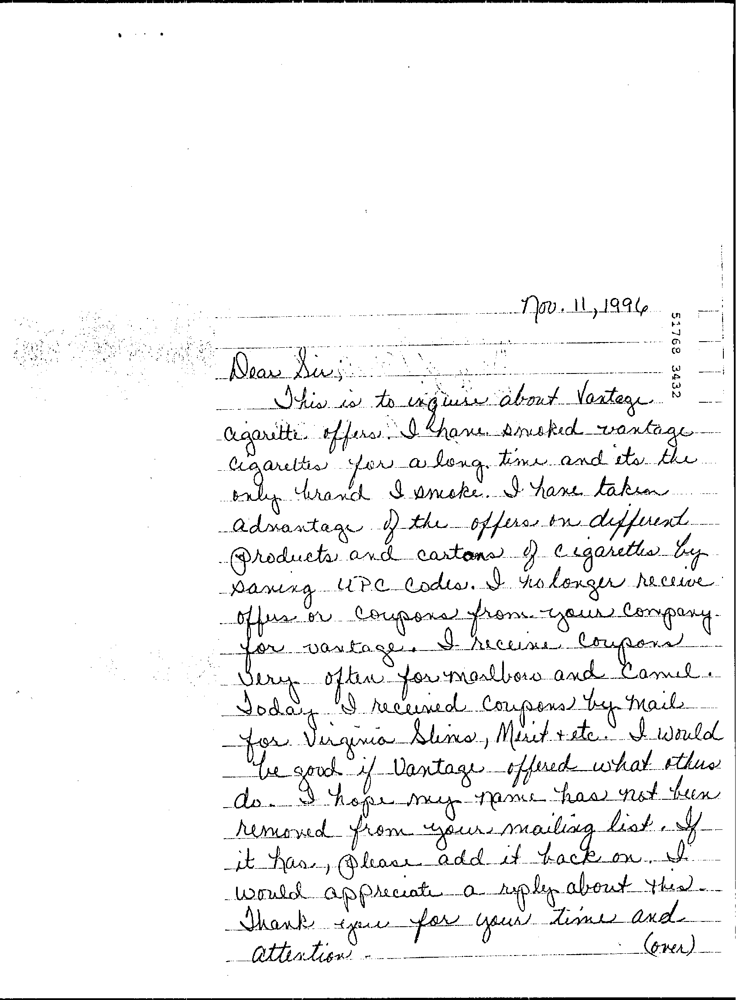 Nov. 11, 1996
51768 3432
Dear Sir;
This is to inquire about Vantage
cigarette offers. I have smoked vantage
cigarettes for a long time and its the
only brand I smoke. I have taken
advantage of the offers on different
products and cartons of cigarettes by
saving UPC codes. I no longer receive
offers or coupons from your company
for vantage. I receive coupons
very often for marlboro and Camel.
Today I received coupons by mail
for Virginia Slims, Merit + etc. I would
be good if Vantage offered what others
do. I hope my name has not been
removed from your mailing list. If
it has, please add it back on. I
would appreciate a reply about this.
Thank you for your time and
attention.
(over)